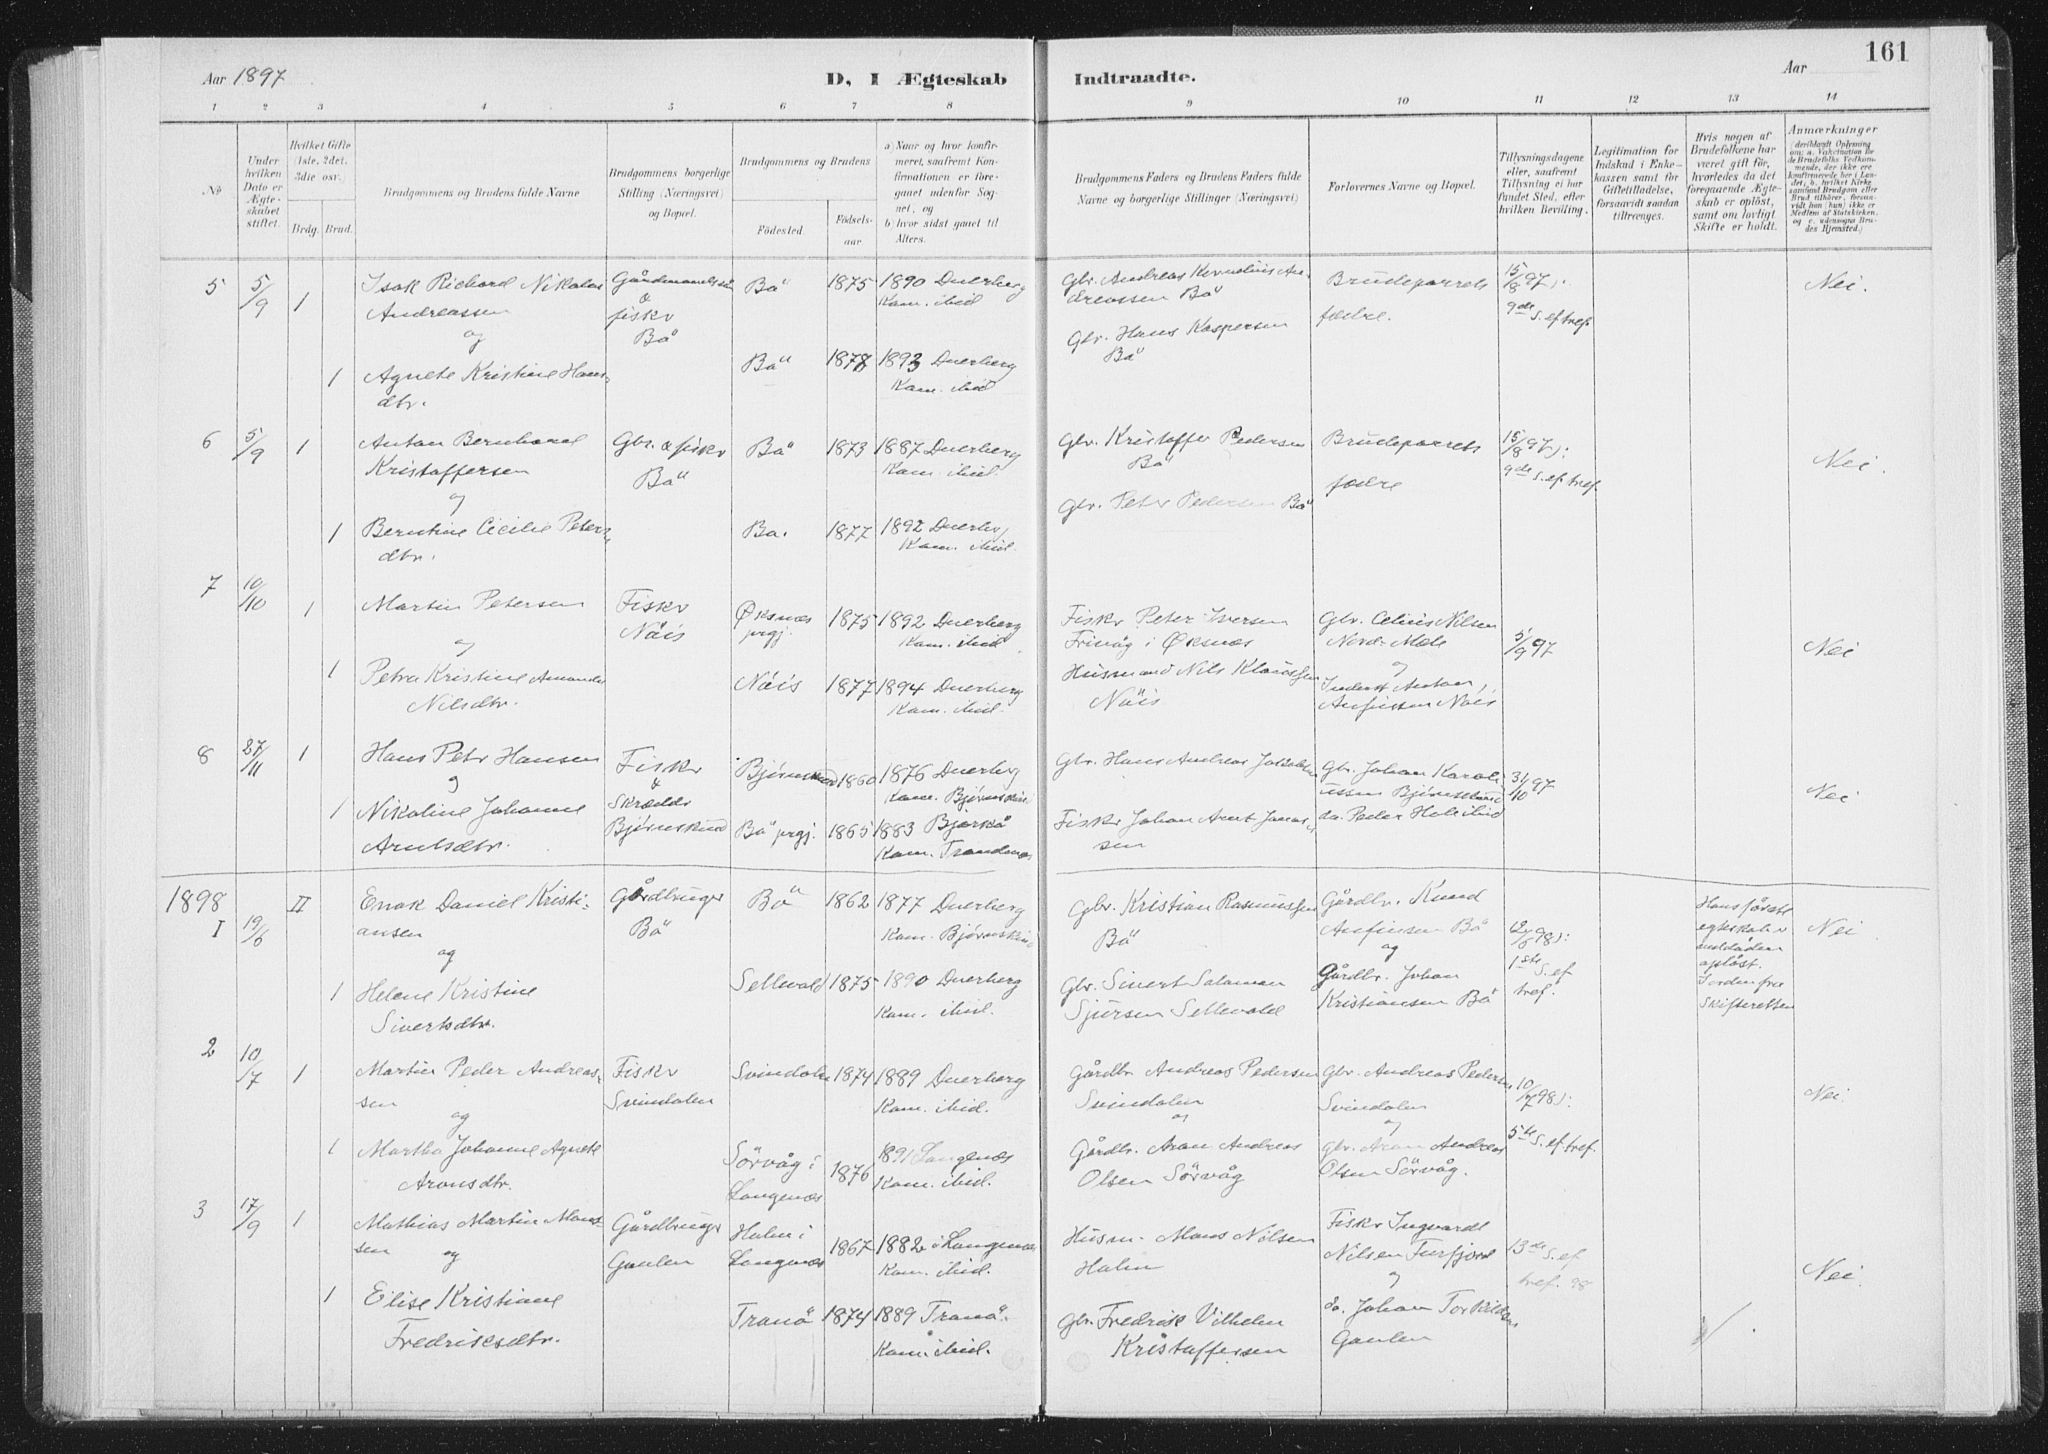 161
Aar 1897
D, I Ægteskab Indtraadte.
Aar
1 2 3 4 5 6 7 8 9 10 11 12 13 14
No
Under hvilken Dato er Ægteskabet stiftet.
Hvilket Gifte (1ste, 2det, 3die osv.)
Brdg. Brud.
Brudgommens og Brudens fulde Navne
Brudgommens borgerlige Stilling (Næringsvei) og Bopæl.
Brudgommens og Brudens
Fødested. Fødselsaar.
a) Naar og hvor konfirmeret, saafremt Konfirmationen er foregaaet udenfor Sognet, og
b) hvor sidst gaaet til Alters.
Brudgommens Faders og Brudens Faders fulde Navne og borgerlige Stillinger (Næringsvei)
Forlovernes Navne og Bopæl.
Tillysningsdagene eller, saafremt Tillysning ei har fundet Sted, efter hvilken Bevilling.
Legitimation for Indskud i Enkekassen samt for Giftetilladelse, forsaavidt saadan tiltrænges.
Hvis nogen af Brudefolkene har været gift før, hvorledes da det foregaaende Ægteskab er opløst, samt om lovligt Skifte er holdt.
Anmærkninger
5 5/9 1 Isak Richard Nikolai Andreassen
og
1 Agnete Kristine Hansdtr.
Gårdmandssøn & fisker Bø
Bø 1875 1890 Dverberg
Kom. ibid
Bø 1878 1893 Dverberg
Kom. ibid
Gbr. Andreas Kornelius Andreassen Bø
Gbr. Hans Kaspersen Bø
Brudeparrets fædre.
15/8 97):
9de S. ef tref.
Nei.
6 5/9 1 Anton Bernhard Kristoffersen
og
1 Berntine Cicilie Petersdtr.
Gbr. & fisker Bø
Bø 1873 1887 Dverberg
Kom. ibid.
Bø. 1877 1892 Dverbg
Kom. ibid.
Gbr. Kristoffer Pedersen Bø
Gbr. Peter Pedersen Bø
Brudeparrets fædre
15/8 97):
9de S. ef. tref.
Nei.
7 10/10 1 Martin Petersen
og
1 Petra Kristine Amanda Nilsdtr.
Fisker Nöis
Øksnæs prgj. 1875 1892 Dverberg
Kom. ibid.
Nöis 1877 1894 Dverberg
Kom. ibid.
Fisker Peter Iversen
i Øksnæs
Husmand Nils Klaussen Nöis
Gbr. Celius Nilsen
Nord-Mele
og
Inderst Anton Anfinsen Nöis
5/9 97
Nei
8 27/11 1 Hans Peter Hansen
og
1 Nikoline Johanne Arntsdtr.
Fisker & Skrædder Bjørnskind
Bjørnskind 1860 1876 Dverberg
Kom. Bjørnskin
Bø prgj. 1865 1883 Bjarkø
Kom. Trondenæs
Gbr. Hans Andreas Jakobsen
Fisker Johan Arnt Jonassen
Gbr. Johan Karoliussen Bjørnskind
do. Peder Hole ibid
31/10 97
Nei
1898
1 19/6 II Enok Daniel Kristiansen
og
1 Helene Kristine Sivertsdtr.
Gårdbruger Bø
Bø 1862 1877 Dverberg
Kom. Bjørnskin
Sellevold 1875 1890 Dverberg
Kom. ibid.
Gbr. Kristian Rasmussen Bø
Gbr. Sivert Salamon Sjursen Sellevold
Gårdbr. Knud Anfinsen Bø
og
Gårdbr. Johan Kristiansen Bø
12/6 98):
1ste S. ef tref.
Hans første egteskab v. død opløst.
fra Skifteretten
Nei
2 10/7 1 Martin Peder Andreassen
og
1 Martha Johanne Agnete Aronsdtr.
Fisker Svindalen
Svindalen 1874 1889 Dverberg
Kom. ibid.
Sörvåg i Langenæs 1876 1891 Langenæs
Kom. ibid.
Gårdbr Andreas Pedersen Svindalen
og
Gårdbr. Aron Andreas Olsen Sörvåg
Gbr. Andreas Pedersen Svindalen
og
Gbr. Aron Andreas Olsen Sörvåg.
10/7 98):
5te S. ef tref.
Nei.
3 17/9 1 Mathias Martin Monssen
og
1 Elise Kristiane Fredriksdtr.
Gårdbruger Gavlen
Holm i Langenæs 1867 1882 i Langenæs
Kom. ibid.
Tranö 1874 1889 Tranö.
Kom. ibid.
Husm. Mons Nilsen Holm
Gbr. Fredrik Vilhelm Kristoffersen
Fisker Ingvard Nilsen
og
do. Johan Torkildsen Gavlen
13de S. ef tref. 98
Nei.